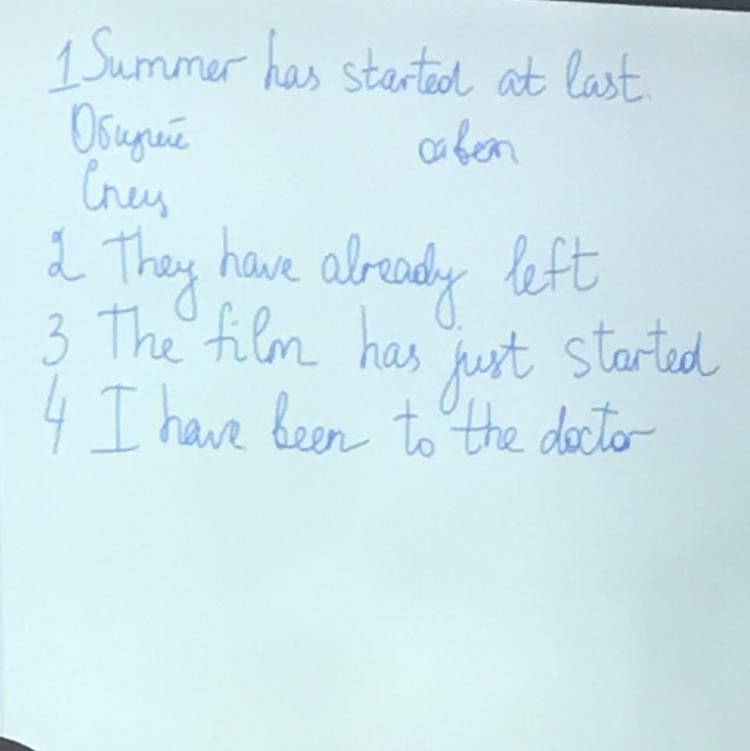 1 Summer has started at last.
Общий ответ
Спец
2 They have already left
3 The film has just started
4 I have been to the doctor